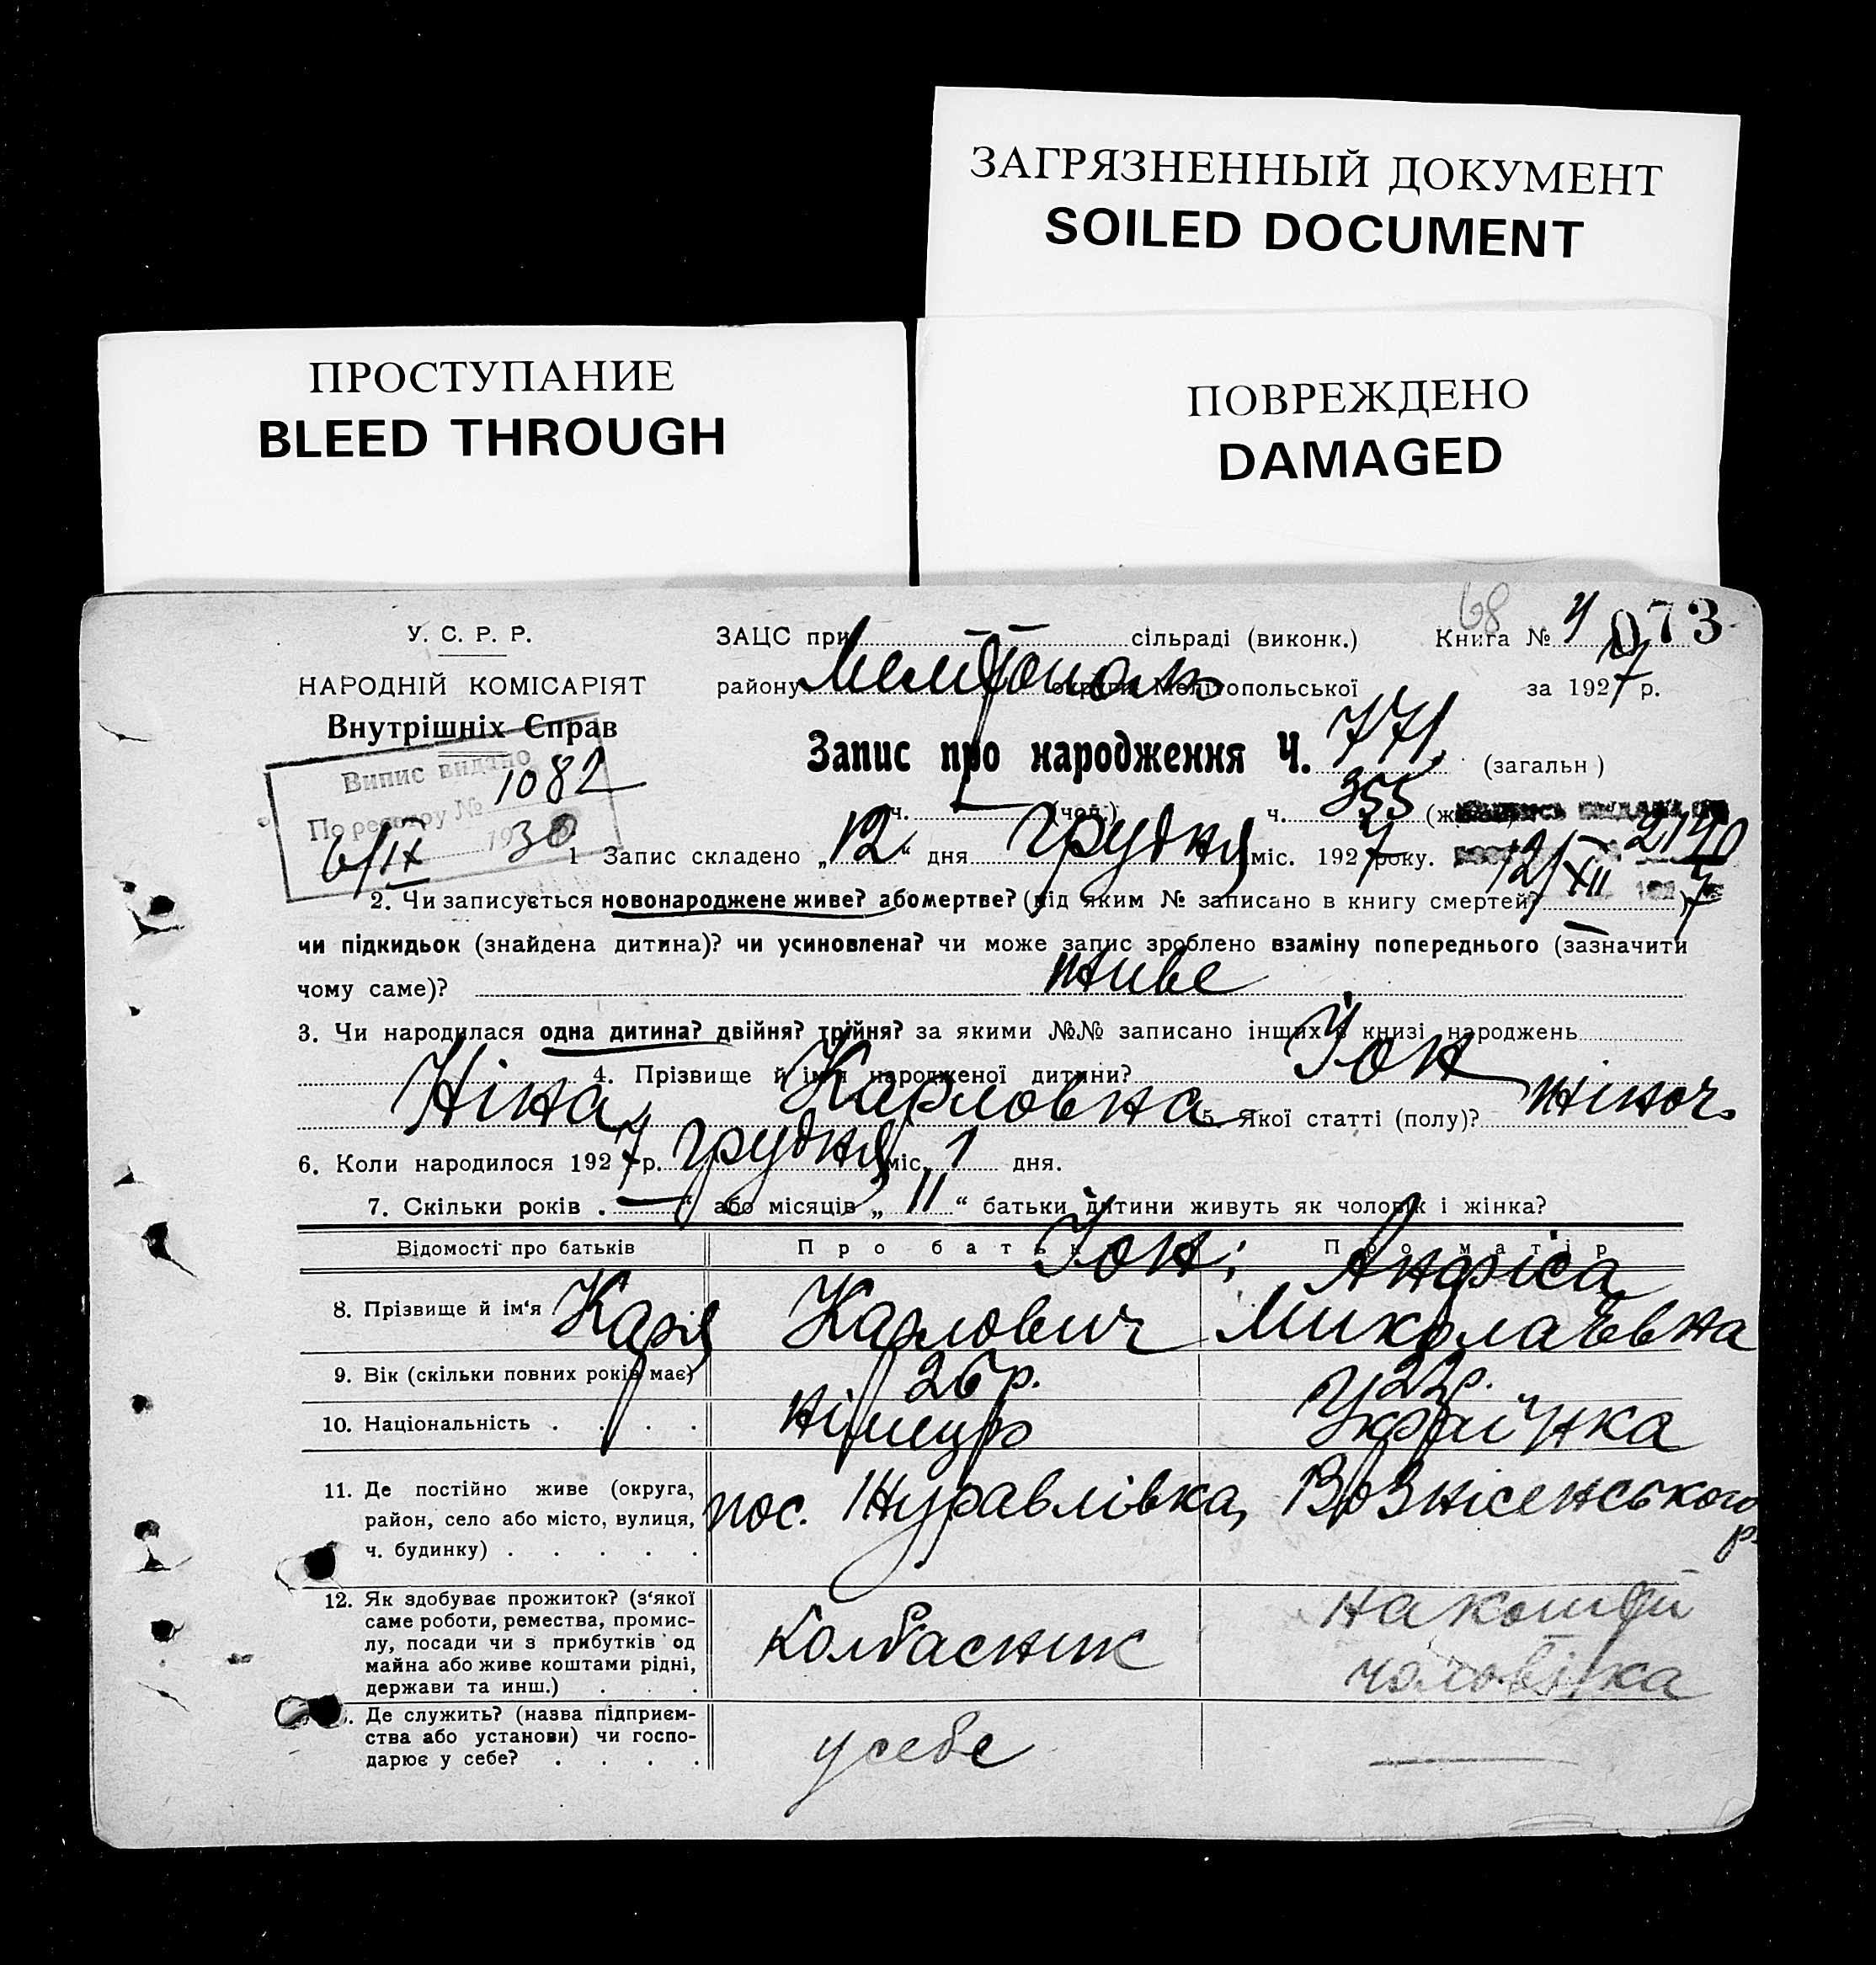 ЗАГРЯЗНЕННЫЙ ДОКУМЕНТ
SOILED DOCUMENT
ПРОСТУПАНИЕ
BLEED THROUGH
ПОВРЕЖДЕНО
DAMAGED
68
У. С. Р. Р.
НАРОДНІЙ КОМІСАРІЯТ
Внутрішніх Справ
Випис видано
По реєстру № 1082
6/IX 1930
ЗАЦС при — — сільраді (виконк.) Книга № 4 073
району Мелітополь округи Мелітопольської за 1927 р.
Запис про народження Ч. 771. (загальн)
ч. — (чол.) ч. 355
2140
12/XII 7
1 Запис складено „12“ дня грудня міс. 1927 року.
2. Чи записується новонароджене живе? або мертве? (під яким № записано в книгу смертей? — )
чи підкидьок (знайдена дитина)? чи усиновлена? чи може запис зроблено взаміну попереднього (зазначити
чому саме)? живе
3. Чи народилася одна дитина? двійня? трійня? за якими №№ записано інших в книзі народжень
4. Прізвище й ім'я народженої дитини? Іон
Ніна Карловна 5. Якої статті (полу)? жіноч.
6. Коли народилося 1927 р. грудня міс. 1 дня.
7. Скільки років . — “ або місяців „ 11 “ батьки дитини живуть як чоловік і жінка?
Відомості про батьків Про батька Про матір
8. Прізвище й ім'я Іон; Карл Карлович Анфіса Миколаєвна
9. Вік (скільки повних років має) 26 р. 22 р.
10. Національність . . . . німець Українка
11. Де постійно живе (округа,
район, село або місто, вулиця,
ч. будинку) . . . . .
пос. Журавлівка, Вознісенського
р.
12. Як здобуває прожиток? (з'якої
саме роботи, ремества, промис-
лу, посади чи з прибутків од
майна або живе коштами рідні,
держави та инш.) . . .
колбасник на кошти
чоловіка
Де служить? (назва підприєм-
ства або установи) чи госпо-
дарює у себе? . . . .
у себе —